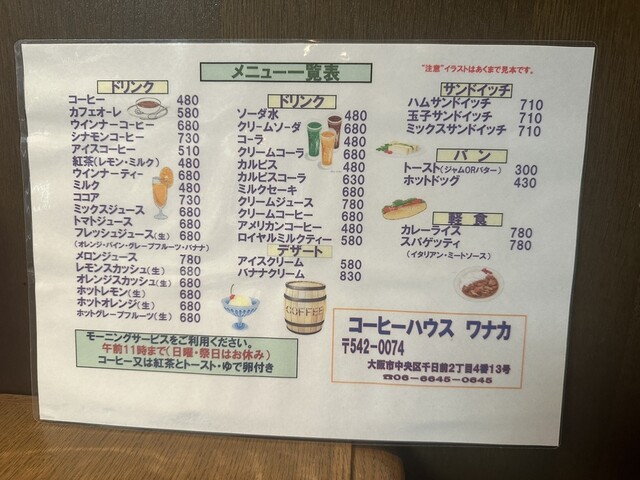 メニュー一覧表
"注意"イラストはあくまで見本です。
ドリンク
コーヒー 480
カフェオーレ 580
ウインナーコーヒー 680
シナモンコーヒー 730
アイスコーヒー 510
紅茶(レモン・ミルク) 480
ウインナーティー 680
ミルク 480
ココア 730
ミックスジュース 680
トマトジュース 680
フレッシュジュース(生) 680
(オレンジ・パイン・グレープフルーツ・バナナ)
メロンジュース 780
レモンスカッシュ(生) 680
オレンジスカッシュ(生) 680
ホットレモン(生) 680
ホットオレンジ(生) 680
ホットグレープフルーツ(生) 680
ドリンク
ソーダ水 480
クリームソーダ 680
コーラ 480
クリームコーラ 680
カルピス 480
カルピスコーラ 630
ミルクセーキ 680
クリームジュース 780
クリームコーヒー 680
アメリカンコーヒー 480
ロイヤルミルクティー 580
デザート
アイスクリーム 580
バナナクリーム 830
COFFEE
サンドイッチ
ハムサンドイッチ 710
玉子サンドイッチ 710
ミックスサンドイッチ 710
パン
トースト(ジャムORバター) 300
ホットドッグ 430
軽食
カレーライス 780
スパゲッティ 780
(イタリアン・ミートソース)
モーニングサービスをご利用ください。
午前11時まで(日曜・祭日はお休み)
コーヒー又は紅茶とトースト・ゆで卵付き
コーヒーハウス ワナカ
〒542-0074
大阪市中央区千日前2丁目4番13号
☎06-6645-0645